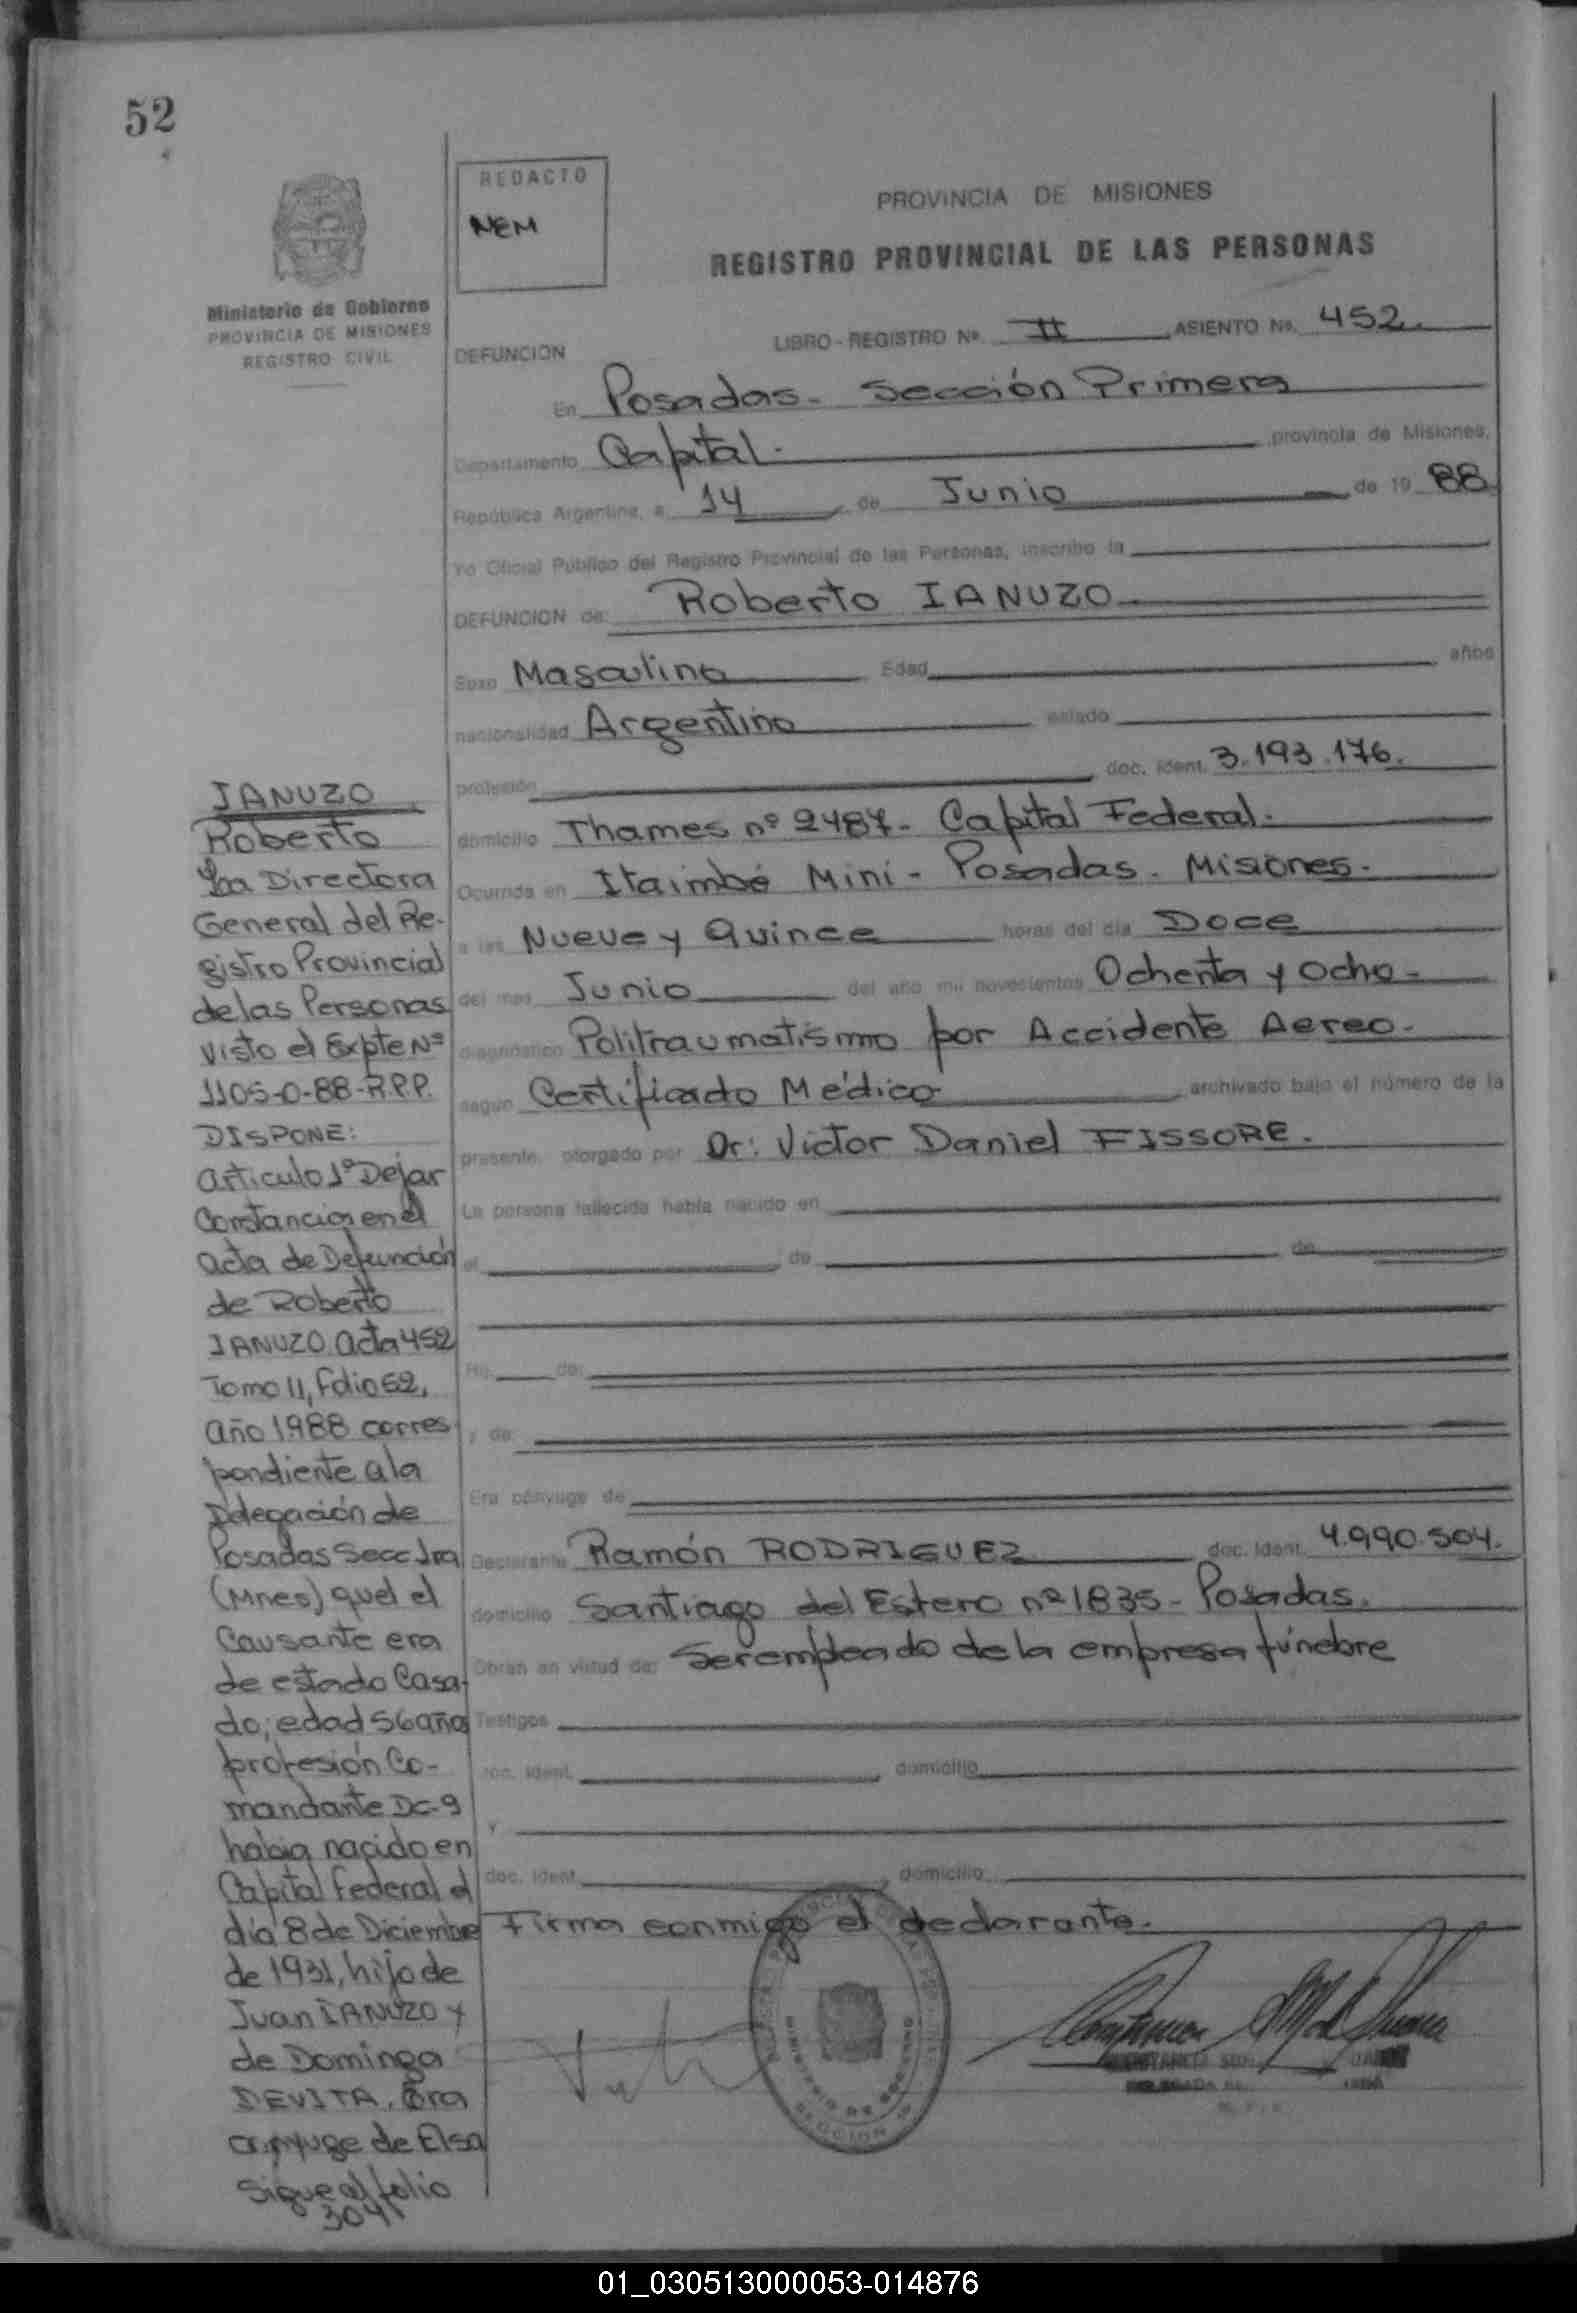 52
REDACTO
NEM
Ministerio de Gobierno
PROVINCIA DE MISIONES
REGISTRO CIVIL
PROVINCIA DE MISIONES
REGISTRO PROVINCIAL DE LAS PERSONAS
LIBRO-REGISTRO Nº II ASIENTO Nº 452.
DEFUNCION
En Posadas - Sección Primera
Departamento Capital. provincia de Misiones,
República Argentina, a 14 de Junio de 19 88
Yo Oficial Público del Registro Provincial de las Personas, inscribo la
DEFUNCION de: Roberto IANUZO
Sexo Masculino Edad años
nacionalidad Argentino estado
profesión doc. ident. 3.193.176.
domicilio Thames nº 2487 - Capital Federal.
Ocurrida en Itaimbé Mini - Posadas - Misiones.
a las Nueve y Quince horas del día Doce
del mes Junio del año mil novecientos Ochenta y Ocho -
diagnóstico Politraumatismo por Accidente Aereo.
según Certificado Médico archivado bajo el número de la
presente, otorgado por Dr: Victor Daniel FISSORE.
La persona fallecida había nacido en
el de de
Hij de:
y de:
Era cónyuge de
Declarante Ramón RODRIGUEZ doc. ident. 4.990.504.
domicilio Santiago del Estero nº 1835 - Posadas.
Obran en virtud de: Ser empleado de la empresa fúnebre
Testigos
doc. ident. domicilio
y
doc. ident. domicilio
Firma conmigo el declarante.
IANUZO
Roberto
La Directora
General del Re-
gistro Provincial
de las Personas
Visto el Expte Nº
1105-0-88-R.P.P.
DISPONE:
Articulo 1º Dejar
Constancias en el
acta de Defunción
de Roberto
IANUZO Acta 452
Tomo 11, Folio 52,
Año 1988 corres
pondiente a la
Delegación de
Posadas Secc 1ra
(Mnes) quel el
Causante era
de estado Casa-
do; edad 56 años
profesión Co-
mandante DC-9
habia nacido en
Capital Federal el
día 8 de Diciembre
de 1931, hijo de
Juan IANUZO y
de Dominga
DEVITA. Era
conyuge de Elsa
sigue al folio
304
01_030513000053-014876